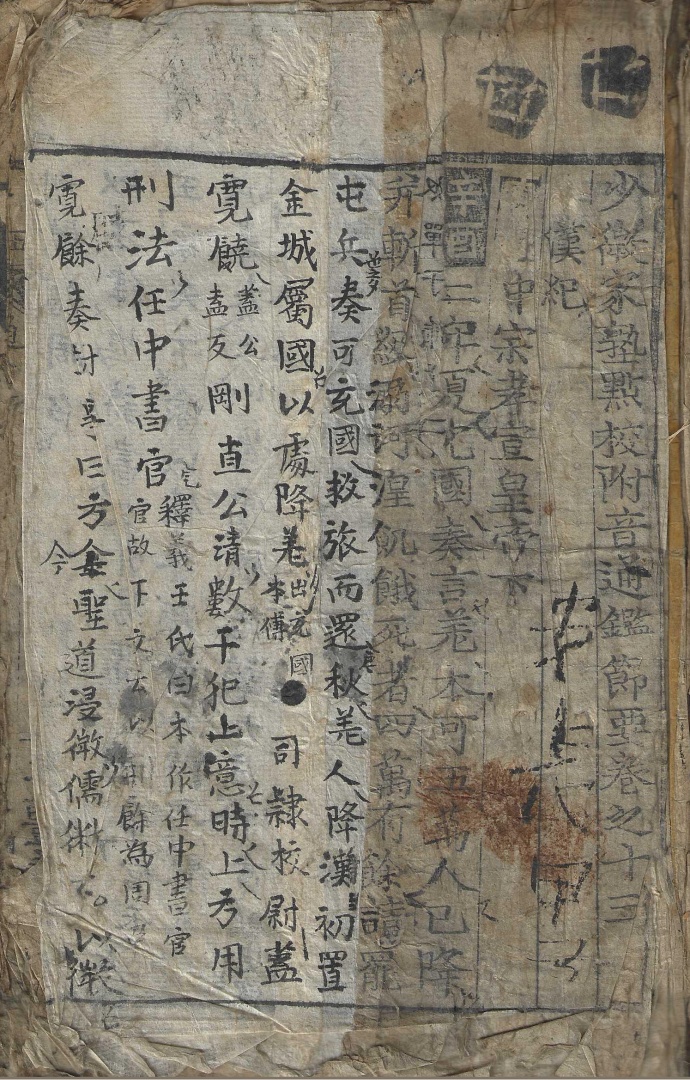 少微家塾點校附音通鑑節要卷之十三
漢紀
中宗孝宣皇帝下
二年夏充國奏言羌本可五萬人已降
斬首級溺河湟飢餓死者四萬有餘請罷
屯兵奏可充國救旅而還秋羌人降漢初置
金城屬國以處降羌出充國本傳●司隸校尉蓋
寬饒蓋公盍反剛直公清數干犯上意時上方用
刑法任中書官釋義王氏曰本作任中書官官故下文云以刑餘為周
寬饒奏封事曰方今聖道浸微儒術